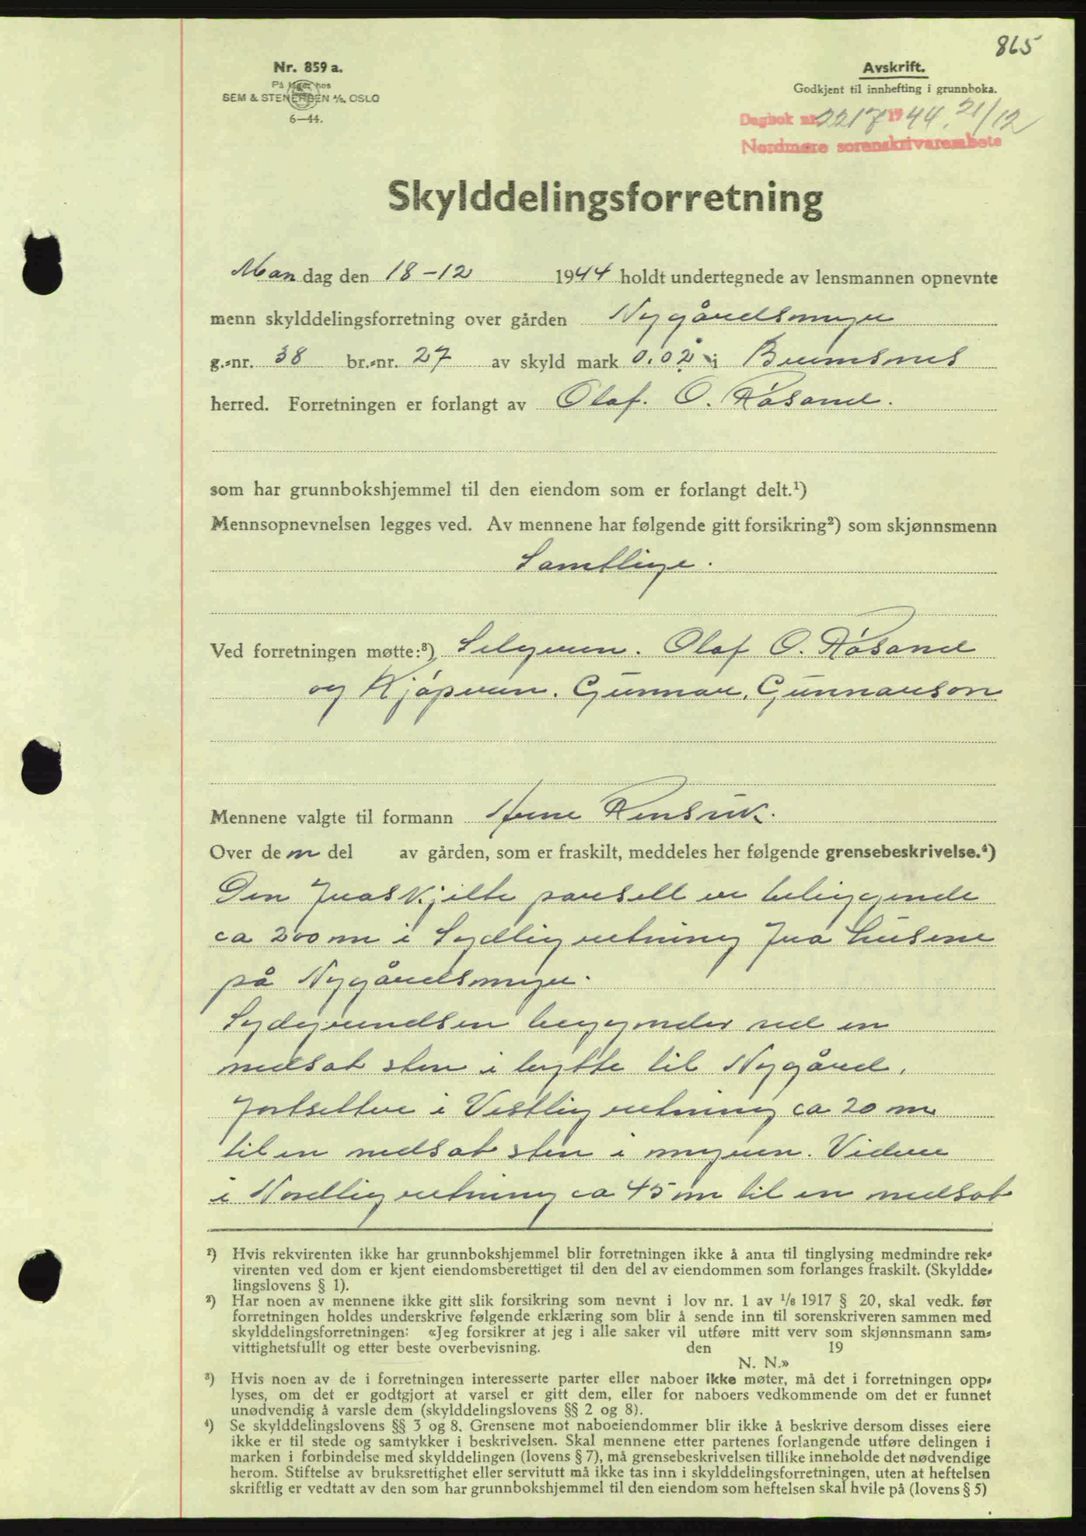 865
Nr. 859 a.
På lager hos
SEM & STENERSEN A/S, OSLO
6—44.
Avskrift.
Godkjent til innhefting i grunnboka.
Dagbok nr. 2217 1944. 21/12
Nordmøre sorenskrivarembete
Skylddelingsforretning
Mandag den 18-12 1944 holdt undertegnede av lensmannen opnevnte
menn skylddelingsforretning over gården Nygårdsmyr
g.-nr. 38 br.-nr. 27 av skyld mark 0.02 i Bremsnes
herred. Forretningen er forlangt av Olaf. O. Røsand.
som har grunnbokshjemmel til den eiendom som er forlangt delt.¹)
Mennsopnevnelsen legges ved. Av mennene har følgende gitt forsikring²) som skjønnsmenn
Samtlige.
Ved forretningen møtte:³) Selgeren. Olaf O. Røsand
og Kjøperen. Gunnar. Gunnarson
Mennene valgte til formann Arne Rensvik.
Over dem del av gården, som er fraskilt, meddeles her følgende grensebeskrivelse.⁴)
Den fraskjilte parsell er beliggende
ca 200 m i Sydlig retning fra husene
på Nygårdsmyr.
Sydgrendsen begynder ved en
nedsat sten i bytte til Nygård.
fortsetter i Vestlig retning ca 20 m
til en nedsat sten i myren. Videre
i Nordlig retning ca 45 m til en nedsat
¹) Hvis rekvirenten ikke har grunnbokshjemmel blir forretningen ikke å anta til tinglysing medmindre rek-
virenten ved dom er kjent eiendomsberettiget til den del av eiendommen som forlanges fraskilt. (Skyldde-
lingslovens § 1).
²) Har noen av mennene ikke gitt slik forsikring som nevnt i lov nr. 1 av 1/6 1917 § 20, skal vedk. før
forretningen holdes underskrive følgende erklæring som blir å sende inn til sorenskriveren sammen med
skylddelingsforretningen: «Jeg forsikrer at jeg i alle saker vil utføre mitt verv som skjønnsmann sam-
vittighetsfullt og etter beste overbevisning. den 19
N. N.»
³) Hvis noen av de i forretningen interesserte parter eller naboer ikke møter, må det i forretningen opp-
lyses, om det er godtgjort at varsel er gitt dem, eller for naboers vedkommende om det er funnet
unødvendig å varsle dem (skylddelingslovens §§ 2 og 8).
⁴) Se skylddelingslovens §§ 3 og 8. Grensene mot naboeiendommer blir ikke å beskrive dersom disses eiere
ikke er til stede og samtykker i beskrivelsen. Skal mennene etter partenes forlangende utføre delingen i
marken i forbindelse med skylddelingen (lovens § 7), må grensebeskrivelsen tillike inneholde det nødvendige
herom. Stiftelse av bruksrettighet eller servitutt må ikke tas inn i skylddelingsforretningen, uten at heftelsen
skriftlig er vedtatt av den som har grunnbokshjemmel til den eiendom som heftelsen skal hvile på (lovens § 5)